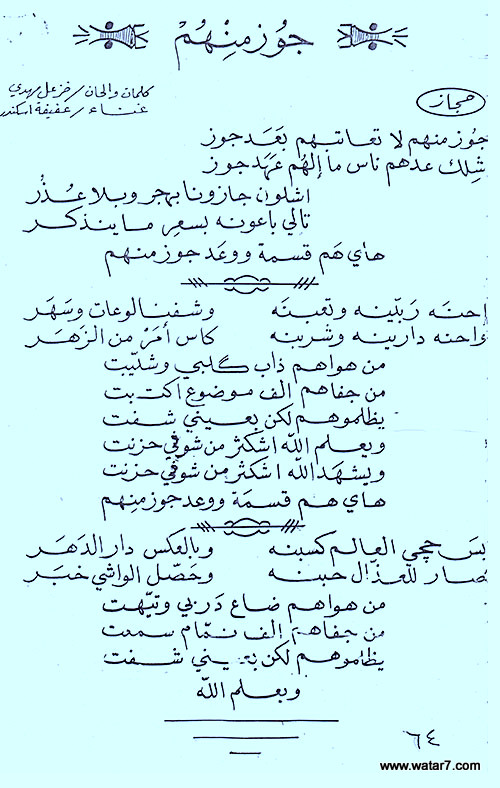 جوز منهم
حجاز
كلمات والحان / خزعل مهدي
غناء / عفيفة اسكندر
جوز منهم لا تعاتبهم بعد جوز
شلك عدهم ناس ما إلهم عهد جوز
اشلون جازونا بهجر وبلا عذر
تالي باعونه بسعر ما ينذكر
هاي هم قسمة ووعد جوز منهم
احنه ربينه وتعبنه وشفنا لوعات وسهر
واحنه دارينه وشربنه كاس أمر من الزهر
من هواهم ذاب گلبي وشليت
من جفاهم الف موضوع اكتبت
يظلموهم لكن بعيني شفت
ويعلم الله اشكثر من شوقي حزنت
ويشهد الله اشكثر من شوقي حزنت
هاي هم قسمة ووعد جوز منهم
بس حچي العالم كسبنه وبالعكس دار الدهر
صار للعذال حبنه وحصل الواشي خبر
من هواهم ضاع دربي وتيهت
من جفاهم الف نمام سمعت
يظلموهم لكن بعيني شفت
ويعلم الله
٦٤
www.watar7.com